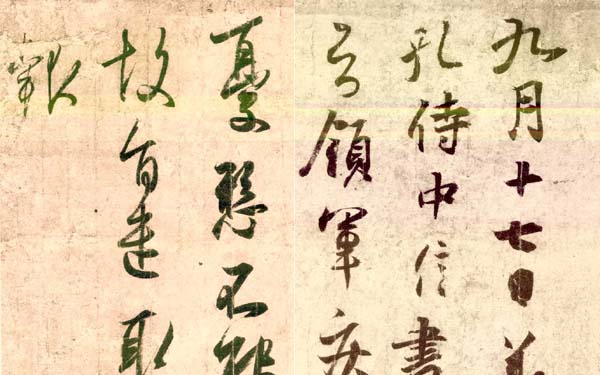 九月十七日
孔侍中信書
知領軍疾
憂懸不能
故旨遣取
報